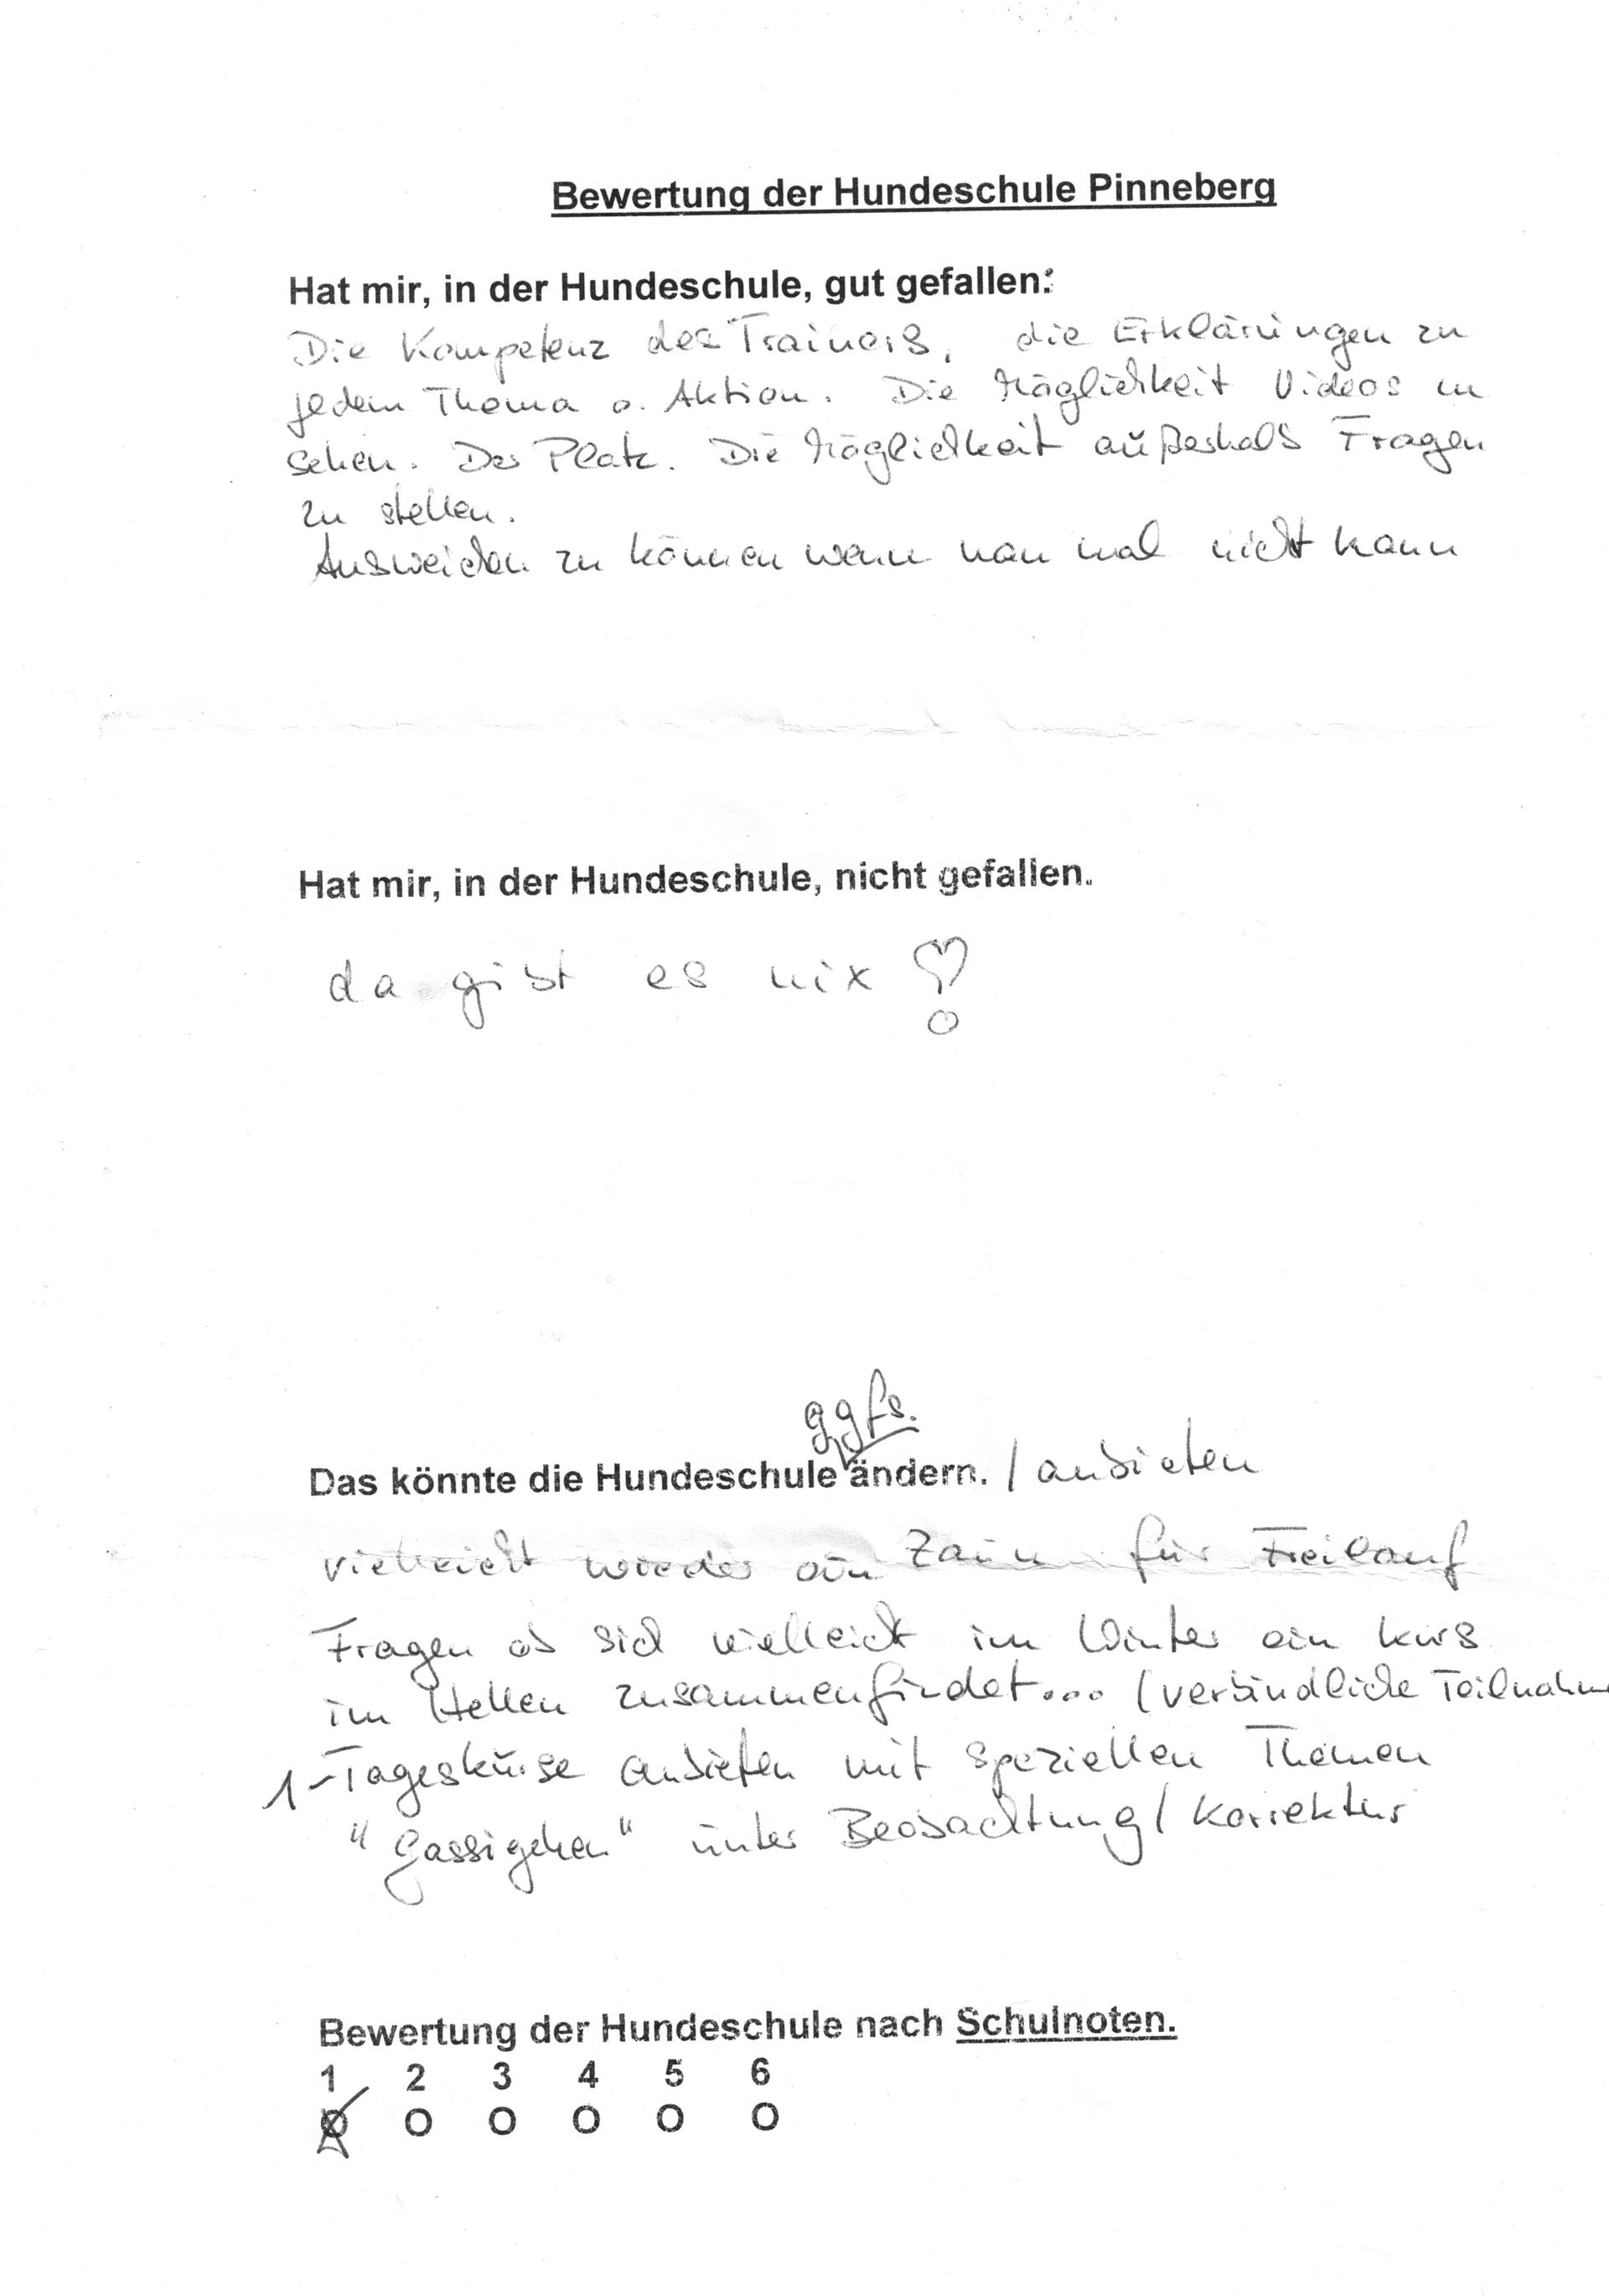 Bewertung der Hundeschule Pinneberg
Hat mir, in der Hundeschule, gut gefallen:
Die Kompetenz des Trainers, die Erklärungen zu
jedem Thema o. Aktion. Die Möglichkeit Videos zu
sehen. Der Platz. Die Möglichkeit außerhalb Fragen
zu stellen.
Ausweichen zu können wenn man mal nicht kann
Hat mir, in der Hundeschule, nicht gefallen.
da gibt es nix
ggfs.
Das könnte die Hundeschule ändern. / anbieten
vielleicht wieder ein Zaun für Freilauf
Fragen ob sich vielleicht im Winter ein Kurs
im Hellen zusammenfindet... (verbindliche Teilnahm
1-Tageskurse anbieten mit speziellen Themen
"Gassigehen" unter Beobachtung / Korrektur
Bewertung der Hundeschule nach Schulnoten.
1 2 3 4 5 6
O O O O O O